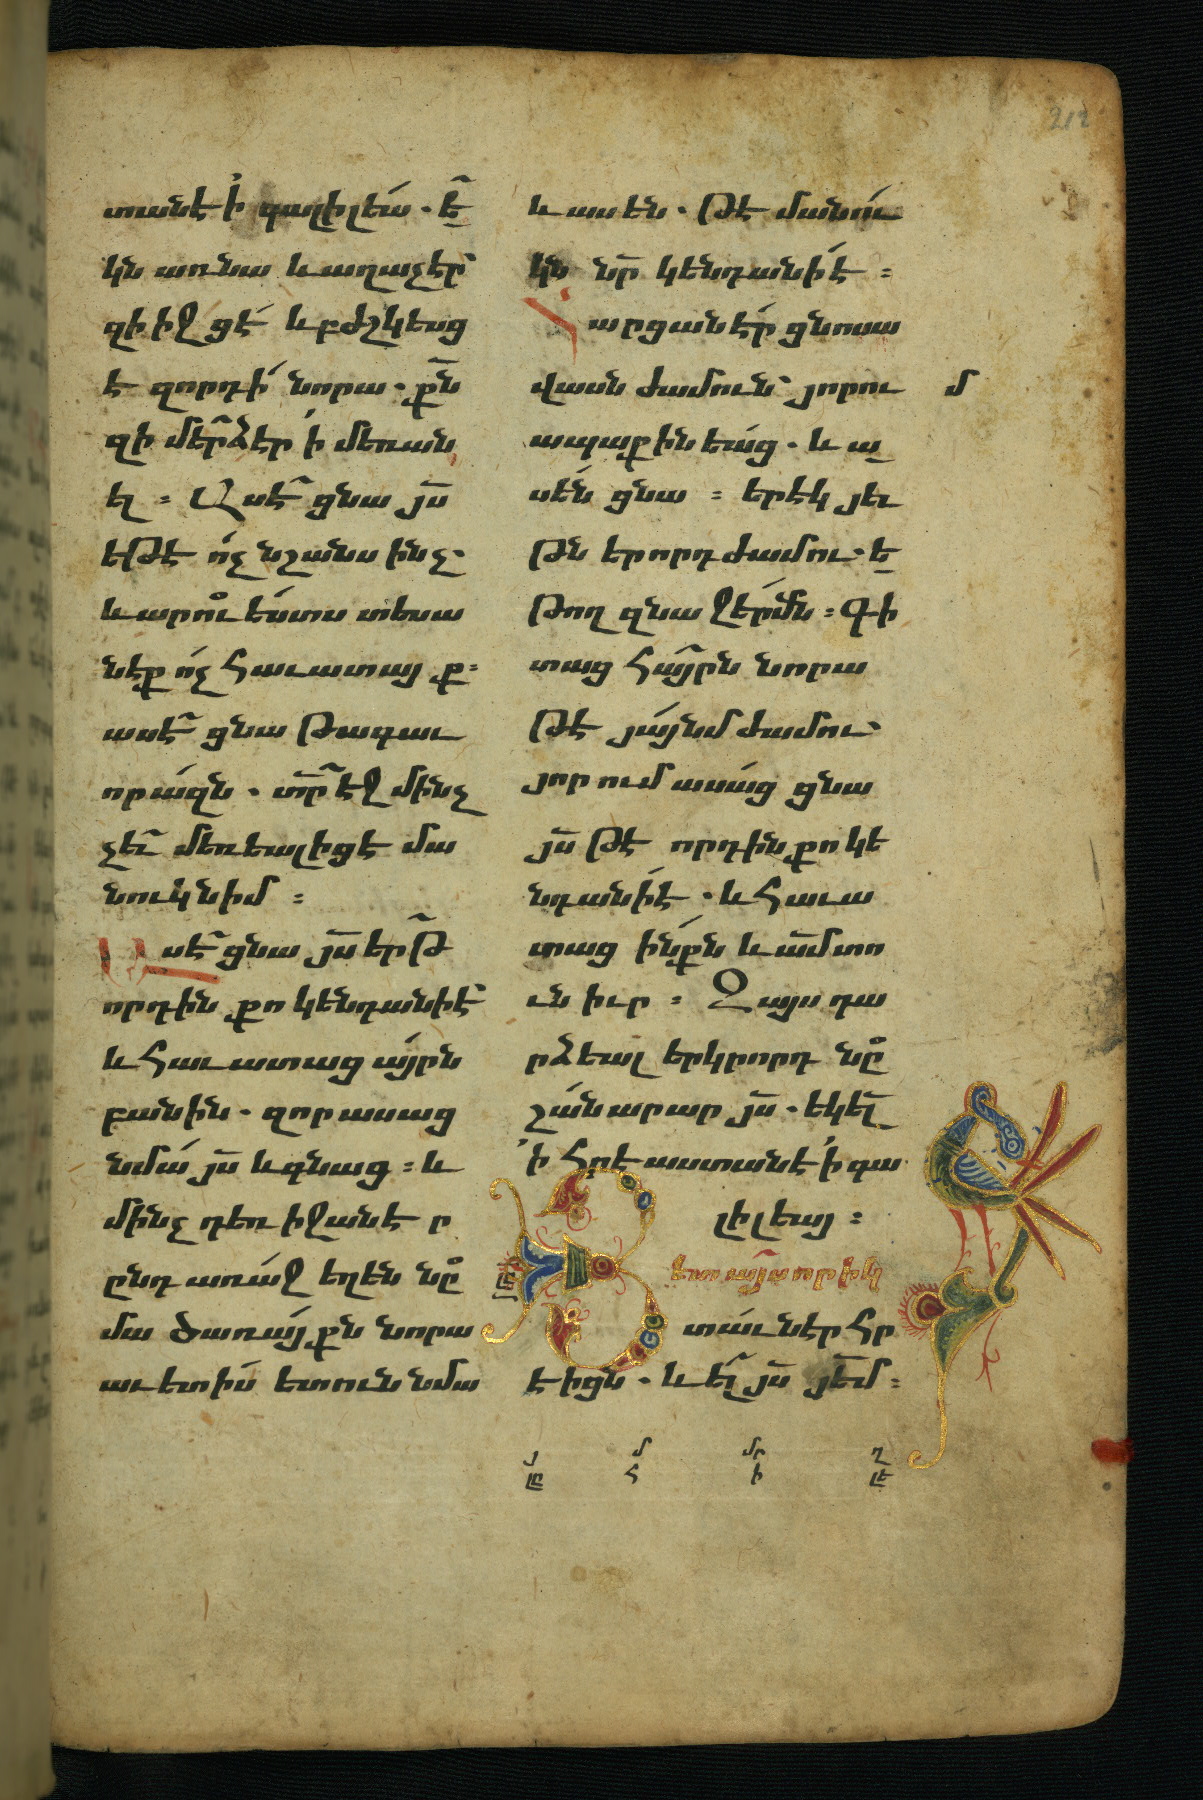 212
տանէ ի գալիլեա. ե՟
կն առ նա և աղաչէր
զի իջցէ և բժշկեսց
է զորդի նորա. ք՟ն
զի մե՟րձ էր ի մեռան
ել : Ասէ ցնա յ՟ս
եթէ ոչ նշանս ինչ.
և արուեստս տեսա
նէք ոչ հաւատայք :
ասէ ցնա թագաւ
որազն. տ՟ր էջ մինչ
չեւ մեռեալ իցէ մա
նուկն իմ :
Ասէ ցնա յ՟ս երթ
որդին քո կենդանի է
և հաւատաց այրն
բանին. զոր ասաց
նմա յ՟ս և գնաց : և
մինչ դեռ իջանէր
ընդ առաջ եղեն ն՟ր
մա ծառայքն նորա
աւետիս ետուն նմա
և ասեն. թէ մանու
կն ն՟ր կենդանի է :
Հարցանէր ցնոսա
վասն ժամուն յորում
ապաքինեաց. և ա
սեն ցնա : երէկ յեւ
թներորդ ժամու. ե
թող զնա ջերմն : Գի
տաց հայրն նորա
թէ յայնմ ժամու
յորում ասաց ցնա
յ՟ս թէ որդին քո կե
նդանի է. և հաւա
տաց ինքն և ա՟մ տո
ւն իւր : Զայս դա
րձեալ երկրորդ ն՟ր
շան արար յ՟ս. եկել
ի հրէաստանէ ի գա
լիլեայ :
Յետ այսորիկ
տաւն էր հր
էից. և ել յ՟ս յ՟եմ :